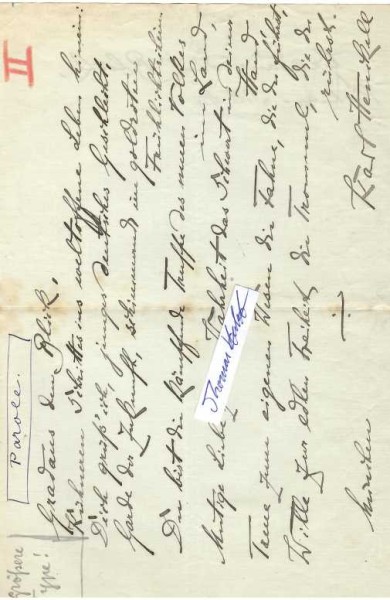 II
Größere
Type!
Parole.
Gradaus den Blick,
Kühnen Schritts ins weltoffne Leben hinein:
Dich grüß' ich, junges deutsches Geschlecht,
Garde der Zukunft, schimmernd im goldroten
Frühlichtschein
Du bist die kämpfende Truppe des neuen Volkes
im Land,
Mutige Liebe Wahrheit das Schwert in deiner
Hand
Thomas
Treue zum eigenen Wesen die Fahne, die du führst,
Wille zur edlen Freiheit die Trommel, die du
rührst.
München
Karl Henckell